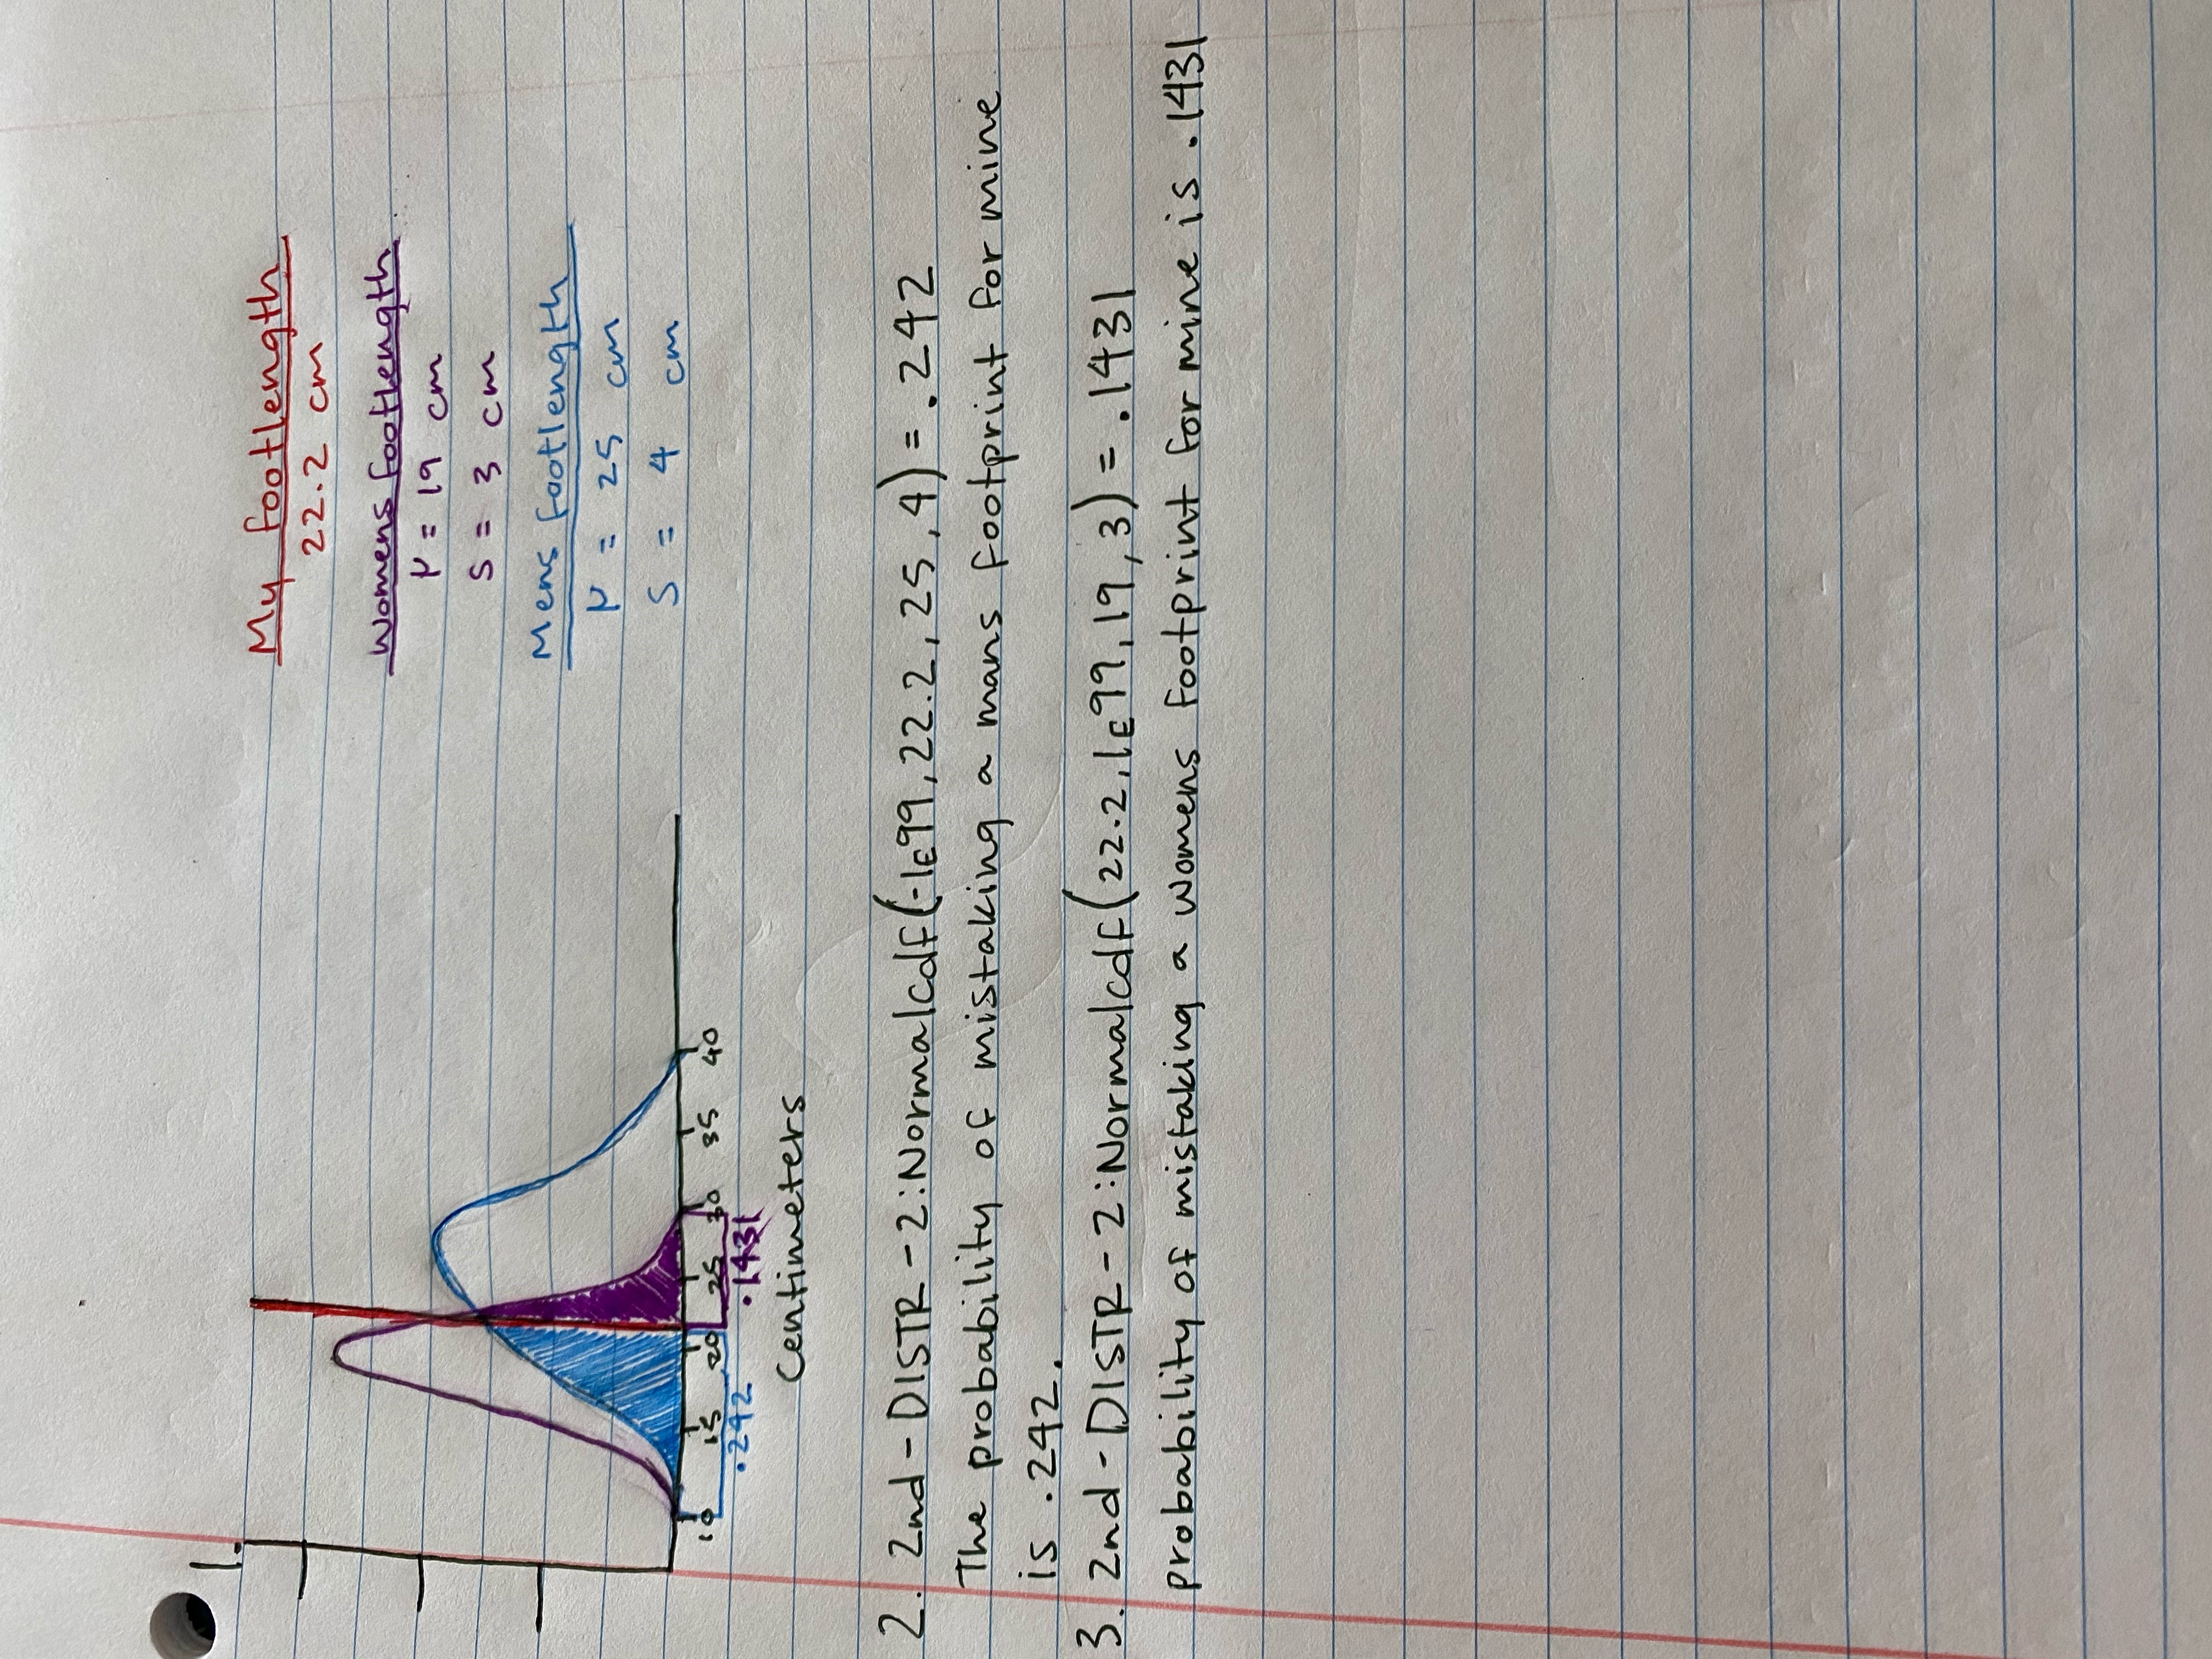 1.
My footlength
22.2 cm
Womens footlength
μ = 19 cm
S = 3 cm
Mens footlength
μ = 25 cm
S = 4 cm
10 15 20 25 30 35 40
.242 .1431
Centimeters
2. 2nd-DISTR-2:Normalcdf(-1E99,22.2,25,4)=.242
The probability of mistaking a mans footprint for mine
is .242.
3. 2nd-DISTR-2:Normalcdf(22.2,1E99,19,3)=.1431
probability of mistaking a womens footprint for mine is .1431